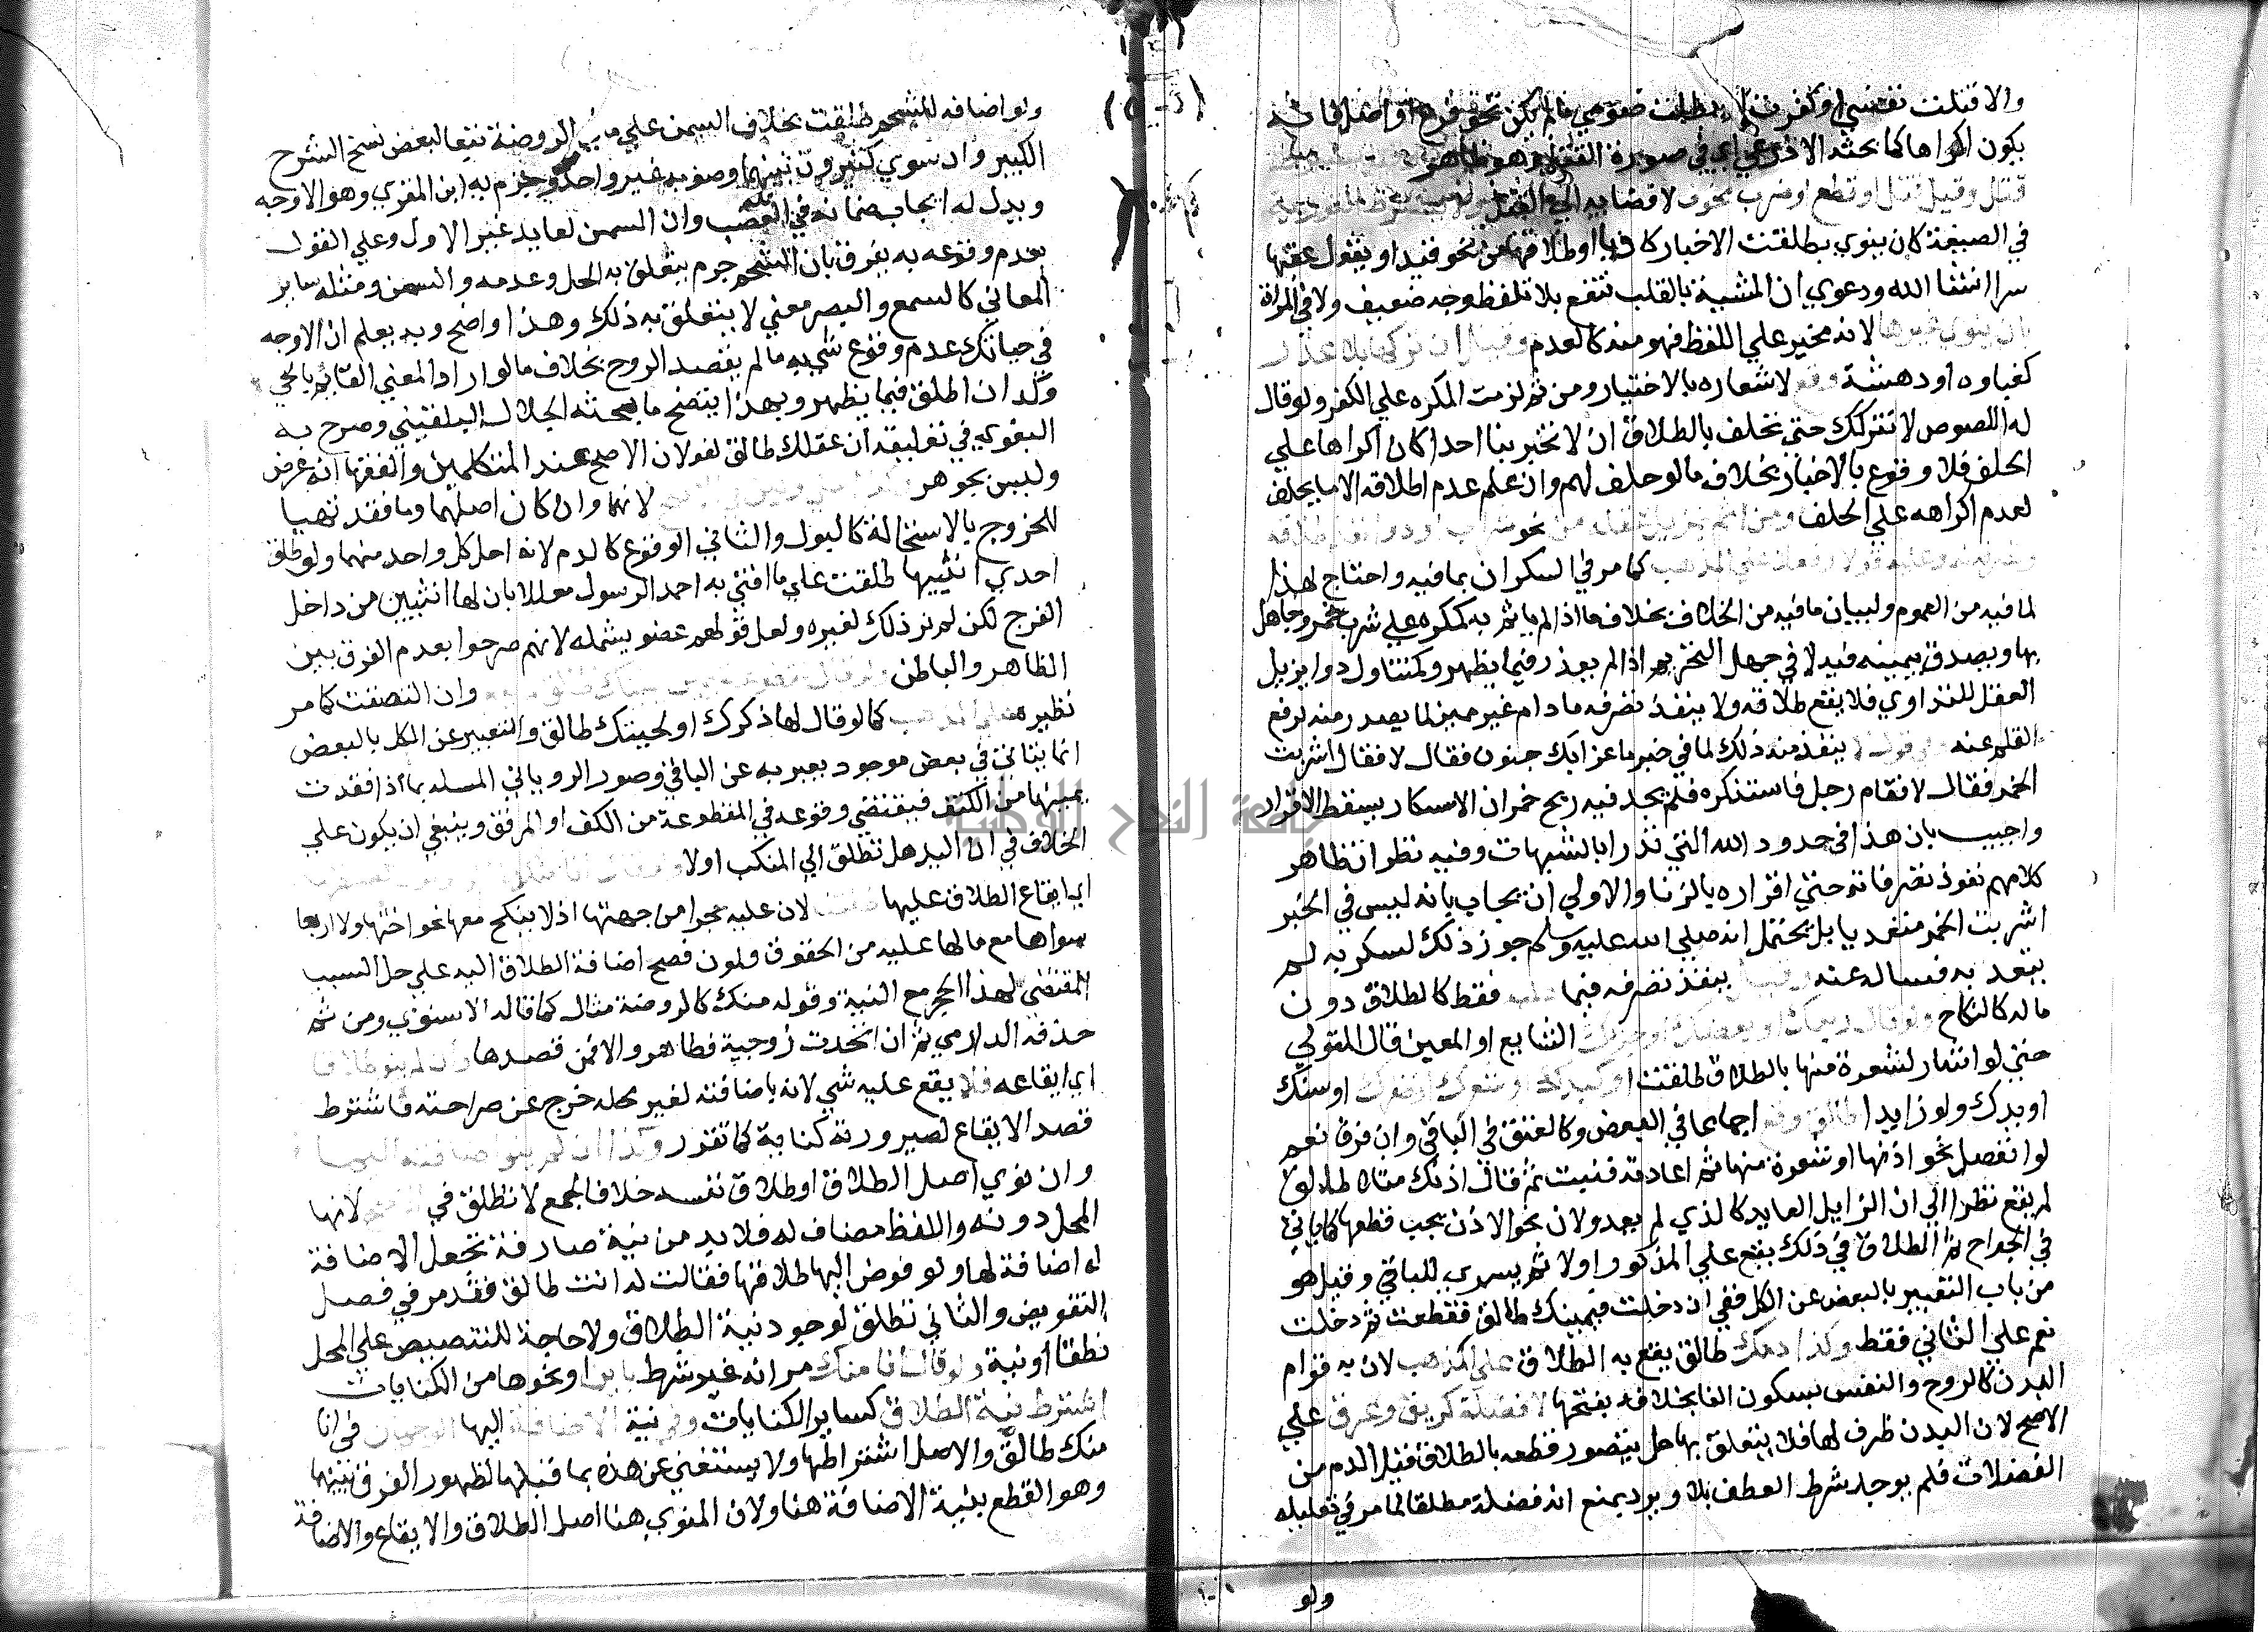 والا قتلت نفسي او كفرت لا يطلقت ما لم يكن نحو فرع او اصل فانه
يكون اكراها كما بحثه الاذرعي اي في صورة القتل وهو ظاهر
قتل وقيل قتل او قطع او ضرب مخوف لافضائه الي القتل
في الصيغة كان ينوي بطلقت الاخبار كاذبا او طلاقها من نحو قيد او يقول عقبها
سرا انشا الله ودعوي ان المشية بالقلب تنفع بلا تلفظ وجه ضعيف ولا في المراة
بان ينوي غيرها لانه مجبر علي اللفظ فهو منه كالعدم وقيل ان تركها بلا عذر
كغباوه او دهشة وقع لاشعاره بالاختيار ومن ثم لزمت المكره علي الكفر ولو قال
له اللصوص لا نتركك حتي تحلف بالطلاق ان لا تخبر بنا احدا كان اكراها علي
الحلف فلا وقوع بالاخبار بخلاف ما لو حلف لهم وان علم عدم اطلاقه الا بالحلف
لعدم اكراهه علي الحلف ومن اثم بمزيل عقله من نحو شراب او دوا نفذ طلاقه
وتصرفه له وعليه قولا وفعلا علي المذهب كما مر في السكران بما فيه واحتاج لهذا
لما فيه من العموم ولبيان ما فيه من الخلاف بخلاف ما اذا لم ياثم به كمكره علي شرب خمر وجاهل
بها ويصدق بيمينه فيه لا في جهل التحريم اذا لم يعذر فيما يظهر وكمتناول دوا يزيل
العقل للتداوي فلا يقع طلاقه ولا ينفذ تصرفه ما دام غير مميز لما يصدر منه لرفع
القلم عنه وفي قول لا ينفذ منه ذلك لما في خبر ماعز ابك جنون فقال لا فقال اشربت
الخمر فقال لا فقام رجل فاستنكره فلم يجد فيه ريح خمر ان الاسكار يسقط الاقرار
واجيب بان هذا في حدود الله التي تدرا بالشبهات وفيه نظر اذ ظاهر
كلامهم نفوذ تصرفاته حتي اقراره بالزنا والاولي ان يجاب بانه ليس في الخبر
اشربت الخمر متعديا بل يحتمل انه صلي الله عليه وسلم جوز ذلك لسكر به لم
يتعد به فساله عنه وقيل ينفذ تصرفه فيما عليه فقط كالطلاق دون
ماله كالنكاح ولو قال ربعك او بعضك او جزؤك الشايع او المعين قال المتولي
حتي لو اشار لشعرة منها بالطلاق طلقت او كبدك او شعرك او ظفرك او سنك
او يدك ولو زايدا طالق وقع اجماعا في البعض وكالعتق في الباقي وان فرق نعم
لو انفصل نحو اذنها او شعرة منها ثم اعادته فثبت ثم قال اذنك مثلا طالق
لم يقع نظرا الي ان الزايل العايد كالذي لم يعد ولان نحو الاذن يجب قطعها كما ياتي
في الجراح ثم الطلاق في ذلك يقع علي المذكور اولا ثم يسري للباقي وقيل هو
من باب التعبير بالبعض عن الكل ففي ان دخلت فيمينك طالق فقطعت ثم دخلت
نعم علي الثاني فقط وكذا دمك طالق يقع به الطلاق علي المذهب لان به قوام
البدن كالروح والنفس بسكون الفا بخلافه بفتحها لا فضلة كريق وعرق علي
الاصح لان البدن ظرف لها فلا يتعلق بها حل يتصور قطعه بالطلاق فقيل الدم من
الفضلات فلم يوجد شرط العطف بلا ويرد بمنع انه فضلة مطلقا لما مر في تعليله
ولو
ولو اضافه للشحم طلقت بخلاف السمن علي ما في الروضة تبعا لبعض نسخ الشرح
الكبير وان سوي كثيرون بينهما وصوبه غير واحد وجزم به ابن المقري وهو الاوجه
ويدل له ايجاب ضمانه في الغصب وان السمن العايد غير الاول وعلي القول
بعدم وقوعه به يفرق بان الشحم جرم يتعلق به الحل وعدمه والسمن ومثله ساير
المعاني كالسمع والبصر معني لا يتعلق به ذلك وهذا واضح وبه يعلم ان الاوجه
في حياتك عدم وقوع شي به ما لم يقصد الروح بخلاف ما لو اراد المعني القائم بالحي
وكذا ان اطلق فيما يظهر وبهذا يتضح ما بحثه الجلال البلقيني وصرح به
البغوي في تعليقه ان عقلك طالق لغو لان الاصح عند المتكلمين والفقها انه عرض
وليس بجوهر لانهما وان كان اصلهما دما فقد تهيا
للخروج بالاستحالة كالبول والثاني الوقوع كالدم لانه احل كل واحد منهما ولو طلق
احدي انثييها طلقت علي ما افتي به احمد الرسول معللا بان لها انثيين من داخل
الفرج لكن لم نر ذلك لغيره ولعل قولهم عضو يشمله لانهم صرحوا بعدم الفرق بين
الظاهر والباطن ولو قال لمقطوعة يمين يمينك طالق لم يقع وان التصقت كما مر
نظيره علي المذهب كما لو قال لها ذكرك او لحيتك طالق والتعبير عن الكل بالبعض
انما يتاتي في بعض موجود يعبر به عن الباقي وصور الروياني المسله بما اذا فقدت
يمينها من الكتف فيقتضي وقوعه في المقطوعة من الكف او المرفق وينبغي ان يكون علي
الخلاف في ان اليد هل تطلق الي المنكب اولا
اي ايقاع الطلاق عليها طلقت لان عليه حجرا من جهتها اذ لا ينكح معها نحو اختها ولا اربعا
سواها مع ما لها عليه من الحقوق والمون فصح اضافة الطلاق اليه علي حل السبب
المقتضي لهذا الحجر مع النية وقوله منك كالروضة مثال كما قاله الاسنوي ومن ثم
حذفه الدارمي ثم ان اتحدت زوجية فظاهر والا فمن قصدها وان لم ينو طلاقا
اي ايقاعه فلا يقع عليه شي لانه باضافته لغير محله خرج عن صراحته فاشترط
قصد الايقاع لصيرورته كناية كما تقرر وكذا ان لم ينو اضافته اليها
وان نوي اصل الطلاق او طلاق نفسه خلافا لجمع لا تطلق في الاصح لانها
المحل دونه واللفظ مضاف له فلا بد من نية صارفة تجعل الاضافة
له اضافة لها ولو فوض اليها طلاقها فقالت له انت طالق فقد مر في فصل
التفويض والثاني تطلق لوجود نية الطلاق ولا حاجة للتنصيص علي المحل
نطقا او نية ولو قال انا منك مر انه غير شرط باين او نحوها من الكنايات
اشترط نية الطلاق كساير الكنايات وفي نية الاضافة اليها الوجهان في انا
منك طالق والاصل اشتراطها ولا يستغني عن هذه بما قبلها لظهور الفرق بينهما
وهو القطع بنية الاضافة هنا ولان المنوي هنا اصل الطلاق والايقاع والاضافة